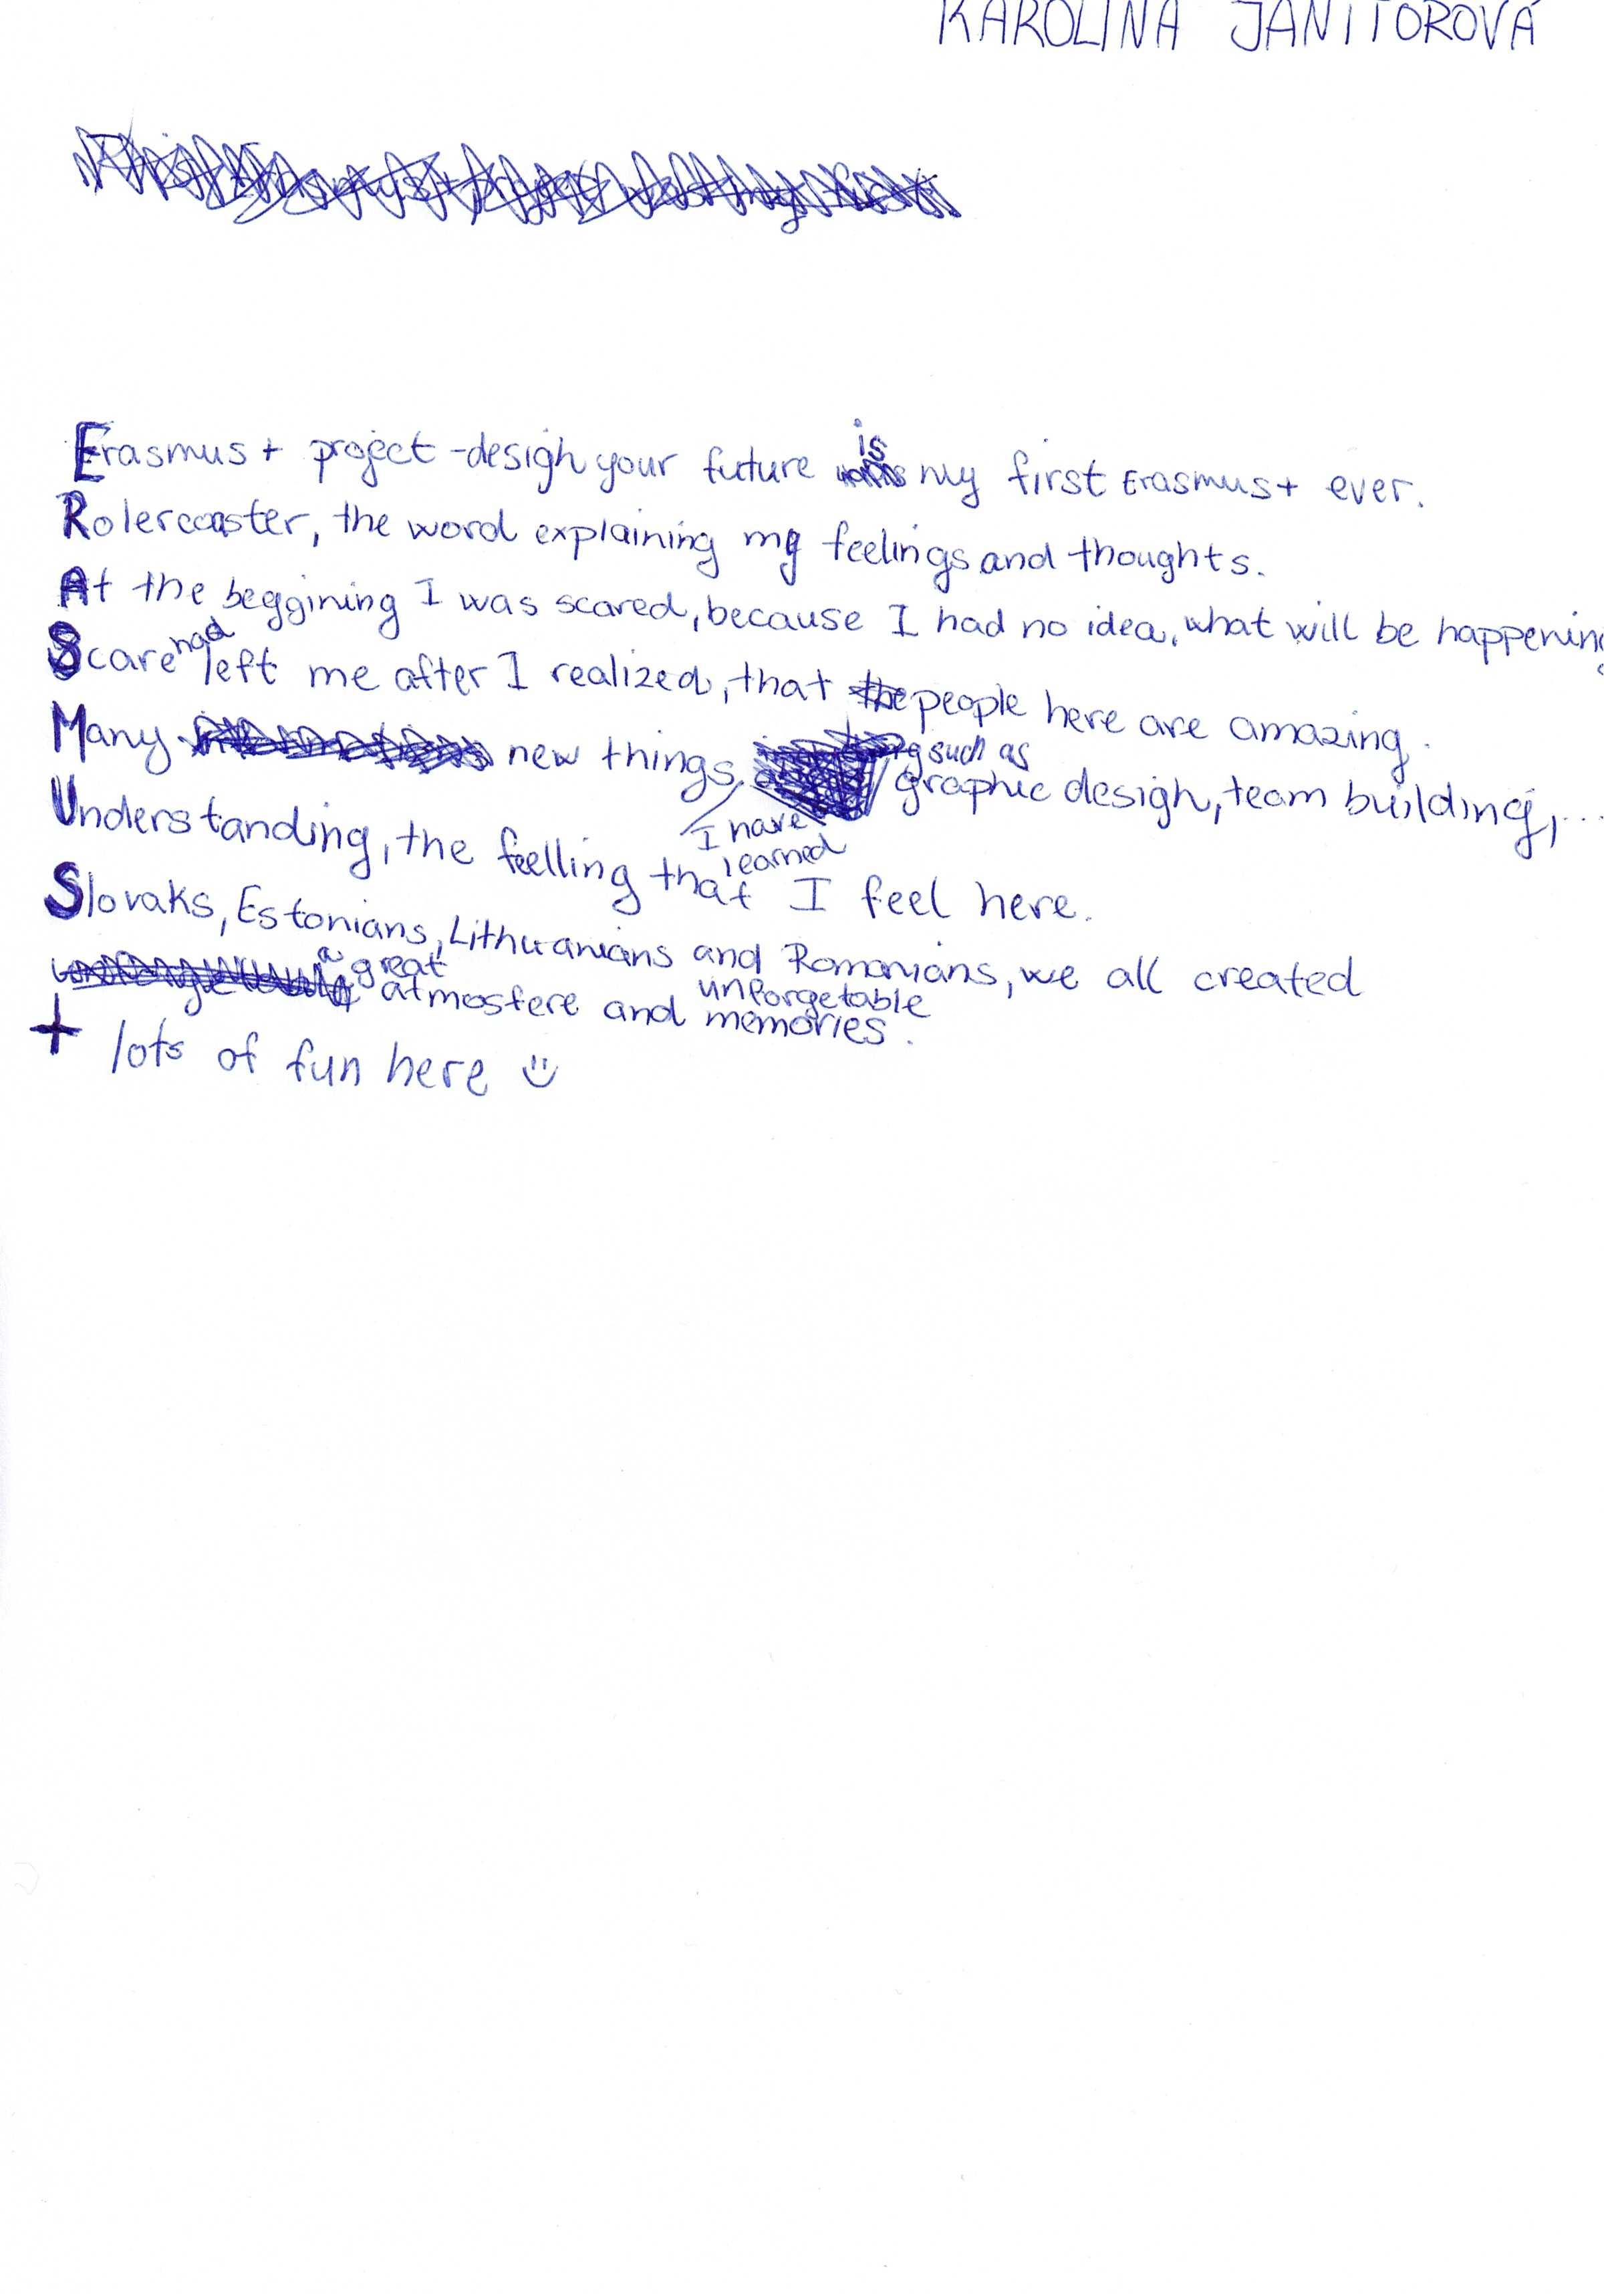 KAROLINA JANITOROVÁ
Erasmus+ project -design your future is my first Erasmus+ ever.
Rolercoaster, the word explaining my feelings and thoughts.
At the beggining I was scared, because I had no idea, what will be happening
Scare had left me after I realized, that the people here are amazing.
Many new things I have learned such as graphic design, team building,...
Understanding, the feelling that I feel here.
Slovaks, Estonians, Lithuanians and Romanians, we all created
a great atmosfere and unforgetable memories.
+ lots of fun here